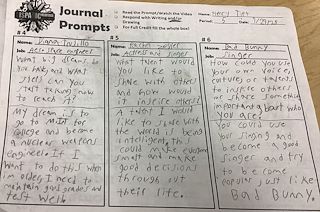 Journal
Prompts
Read the Prompt/Watch the Video
Respond with Writing and/or
Drawing
For Full Credit fill the whole box!
Name:
Period: 5 Date:
#4
Name:
Job: Aerospace engineer
What big dreams do
you have, and what
steps can you
start taking now
to reach it?
My dream is to
go to MIT for
college and become
a nuclear weapons
engineer. If I
want to do this when
I'm older, I need to
maintain good grades and
test well.
#5
Name: Rachel Zegler
Actress and singer
What talent would
you like to
share with others
and how would
it inspire others?
A talent I would
like to share with
the world is being
intelligent, this
could make everyone
smart and make
good decisions
through out
their life.
#6
Name: Bad Bunny
Job: Singer
How could you use
your own voice,
culture, or talent
to inspire others
or share something
important about who
you are?
You could use
your singing and
become a good
singer and try
to become
popular just like
Bad Bunny.